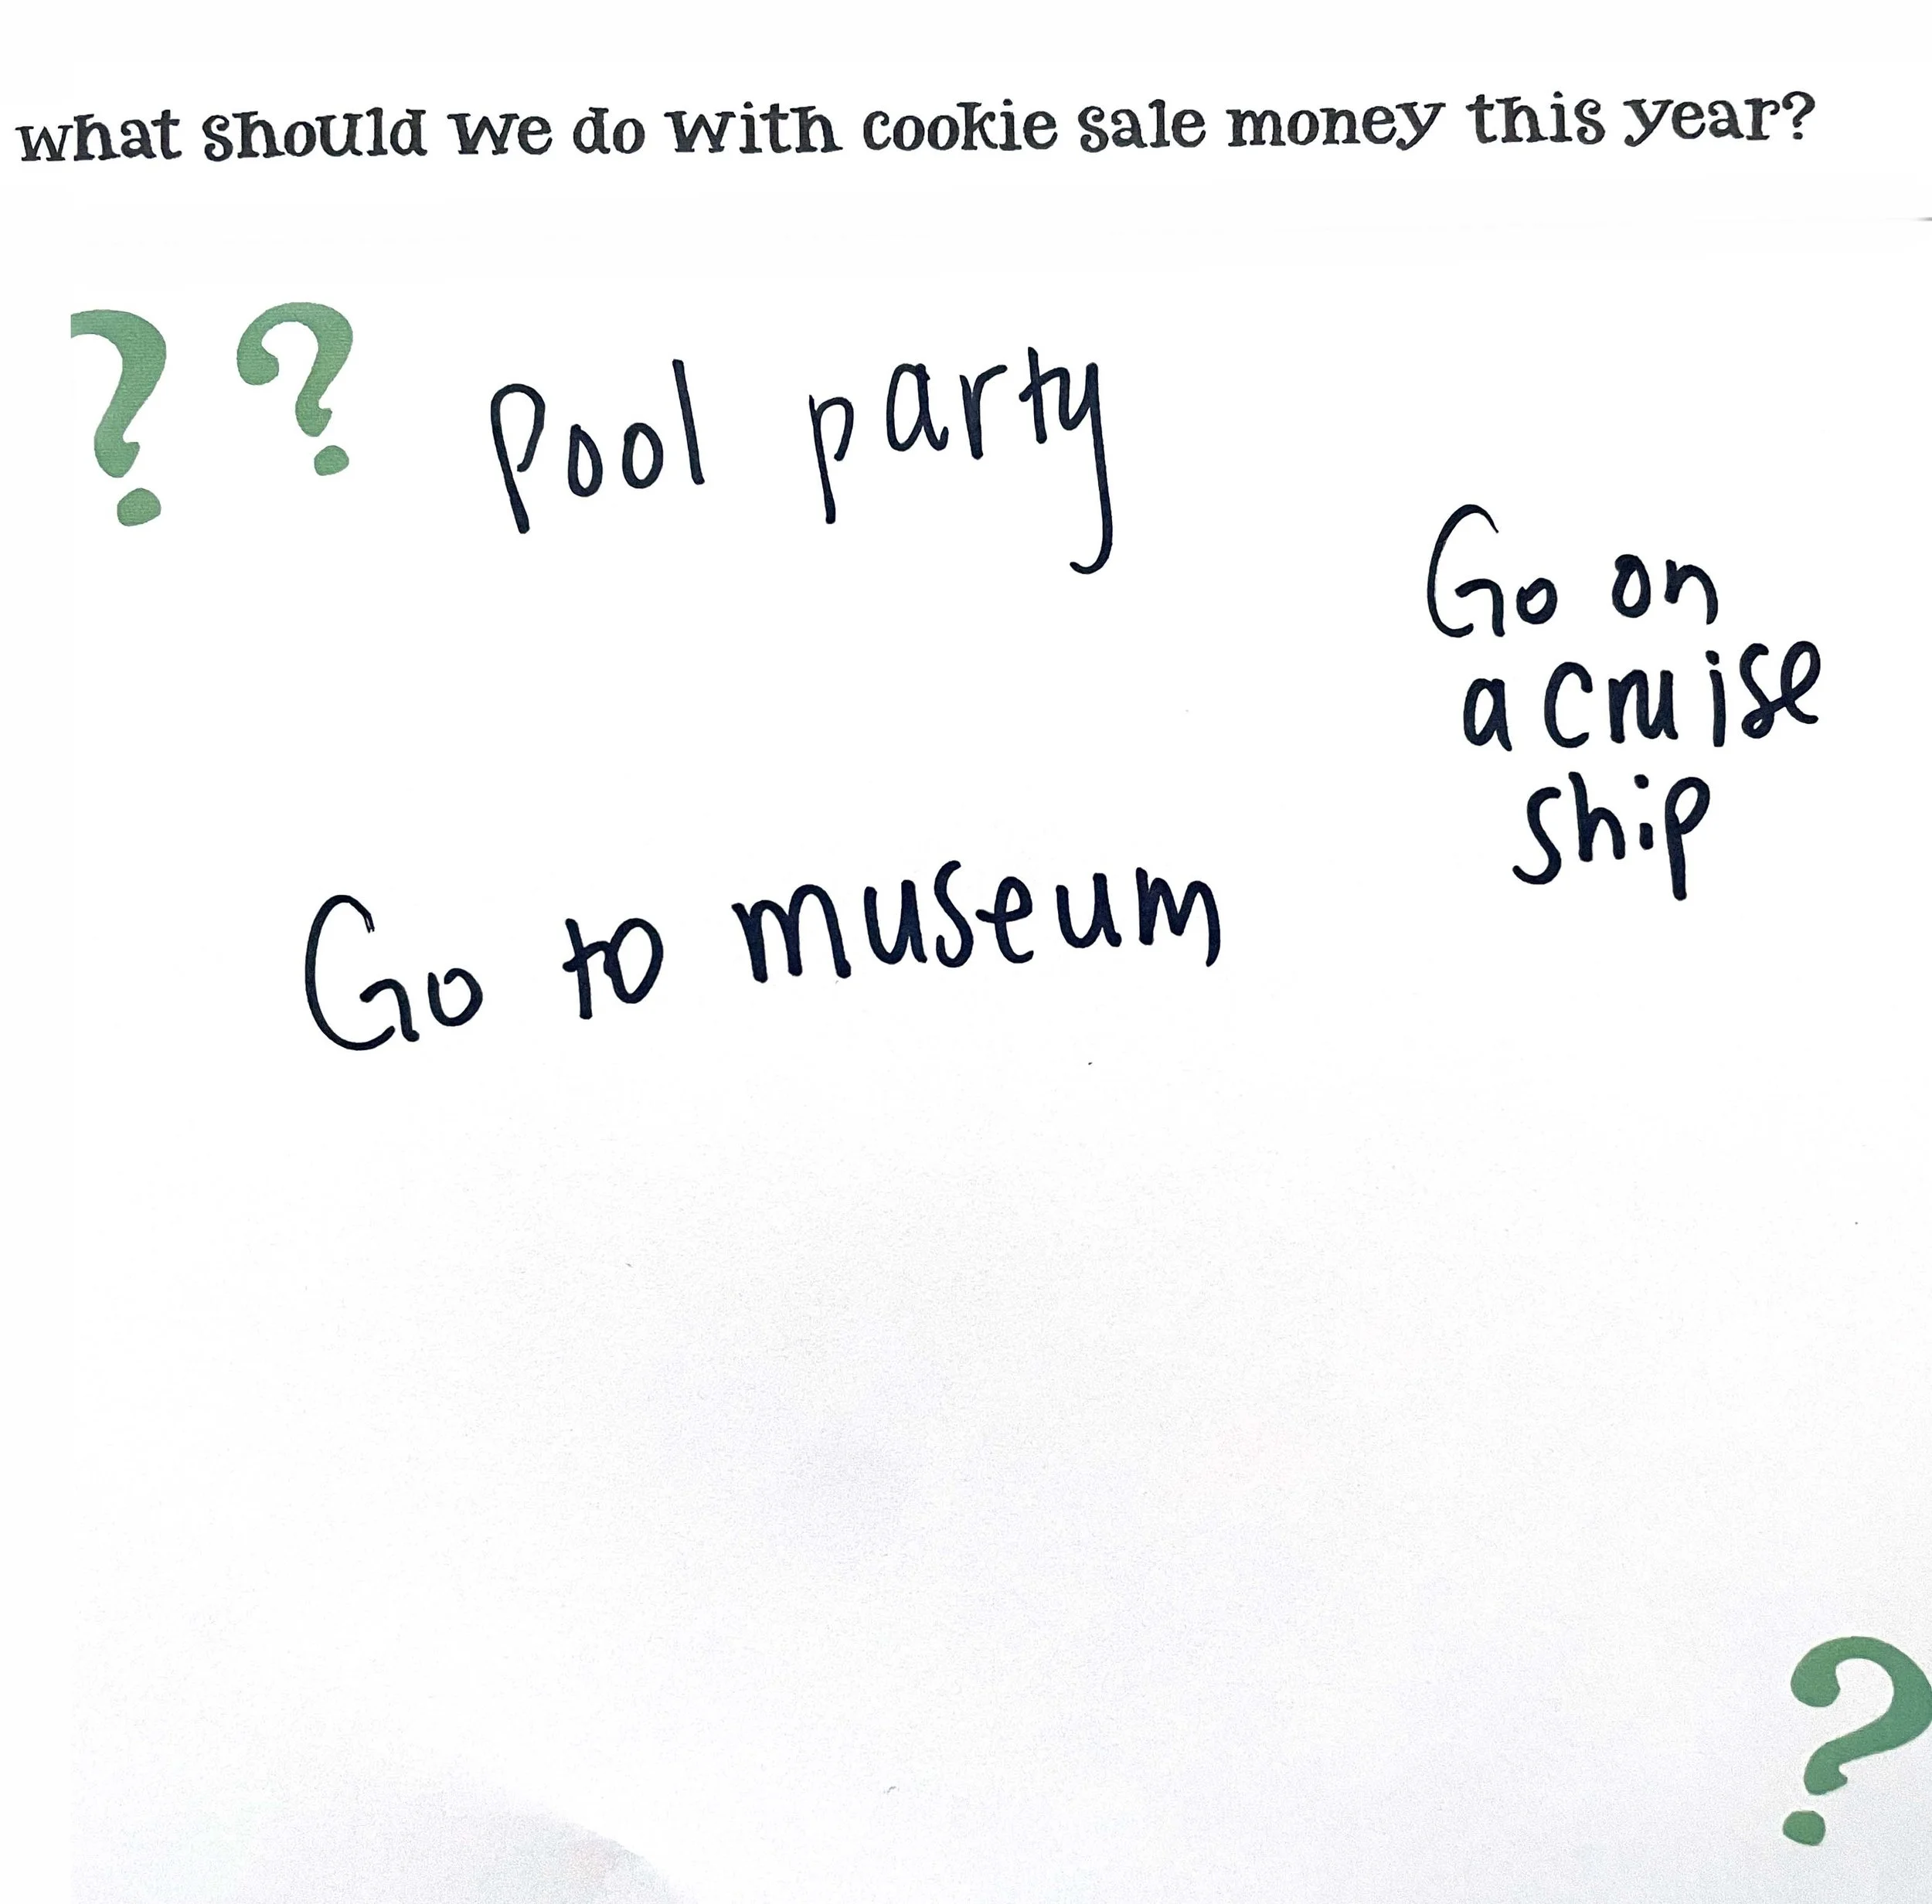 what should we do with cookie sale money this year?
? ?
Pool party
Go on
a cruise
ship
Go to museum
?